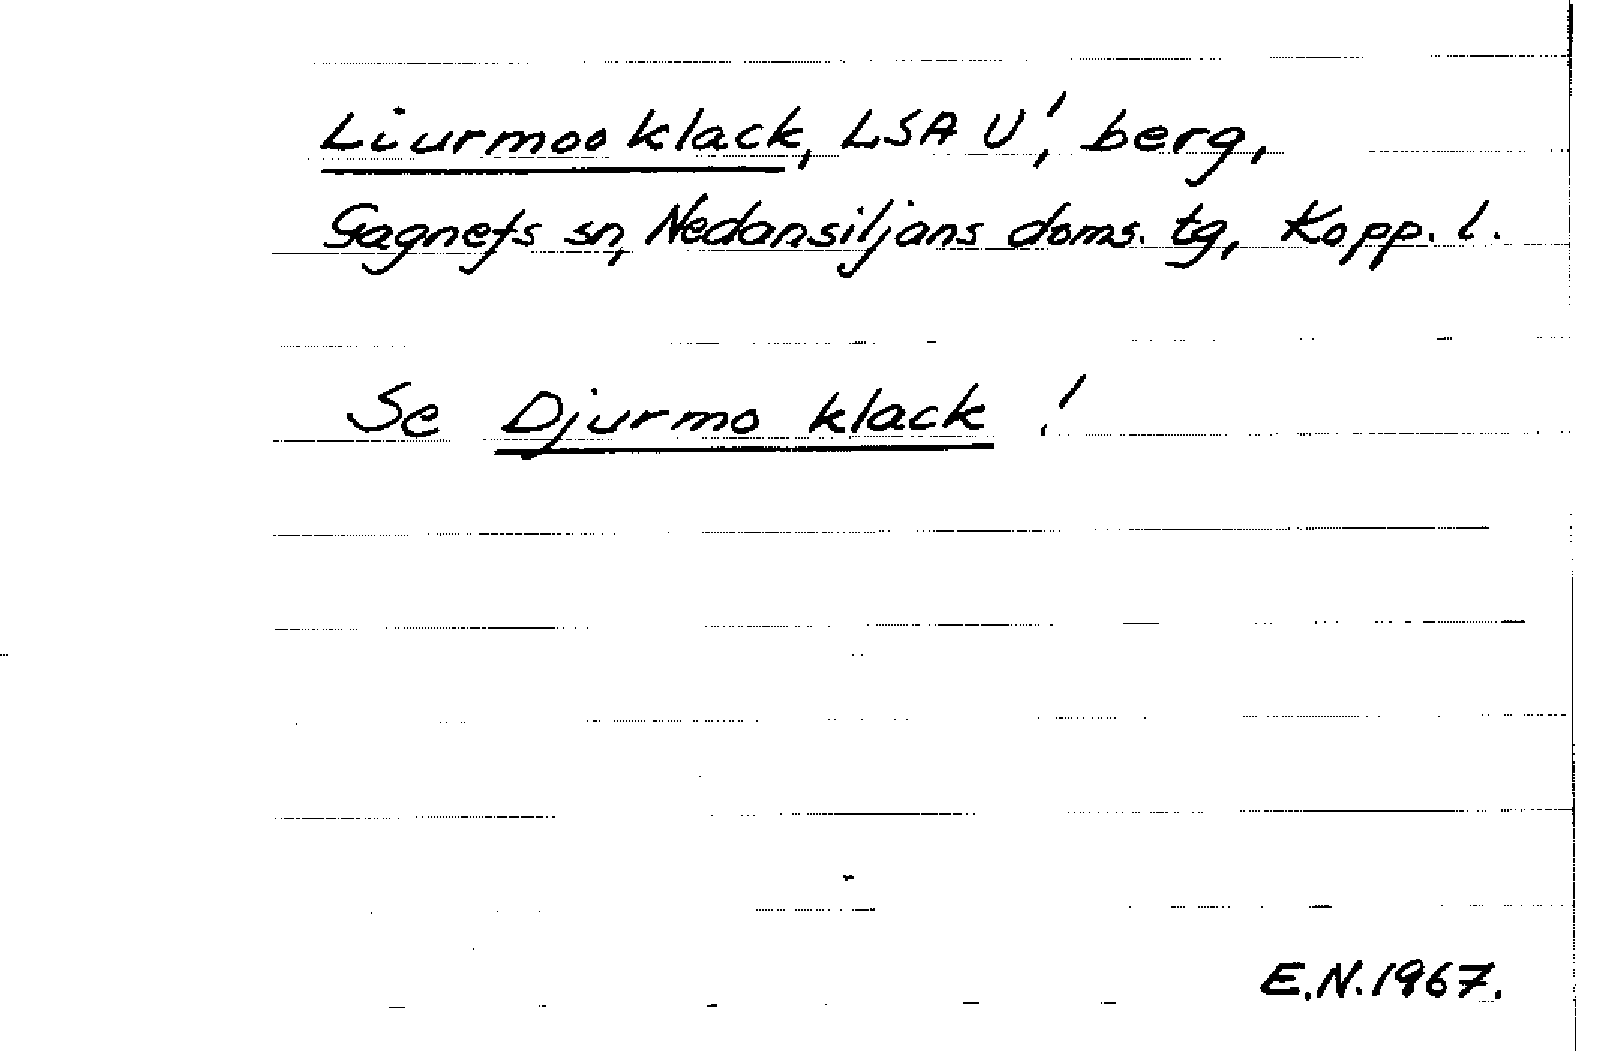 Liurmoo klack, LSA U!, berg,
Gagnefs sn, Nedansiljans doms. tg, Kopp. l.
Se Djurmo klack!
E.N. 1967.